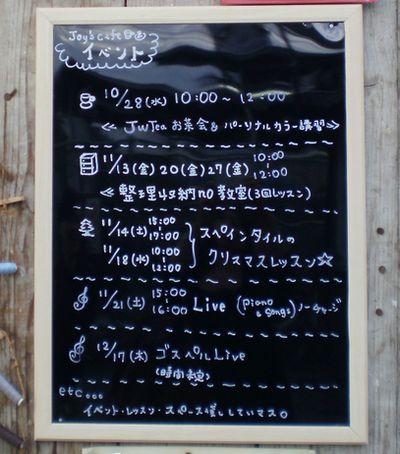 Joy's Cafe 企画
イベント
10/28(水) 10:00~12:00
≪ JuTea お茶会 & パーソナルカラー講習≫
11/13(金) 20(金) 27(金) 10:00~12:00
≪整理収納no教室(3回レッスン)
11/14(土) 15:00~17:00
11/18(水) 10:00~12:00
スペインタイルの
クリスマスレッスン☆
11/21(土) 15:00~16:00 Live (piano & songs) ノーチャージ
12/17(木) ゴスペルLive
(時間未定)
etc...
イベント・レッスン・スペース貸ししていマス。